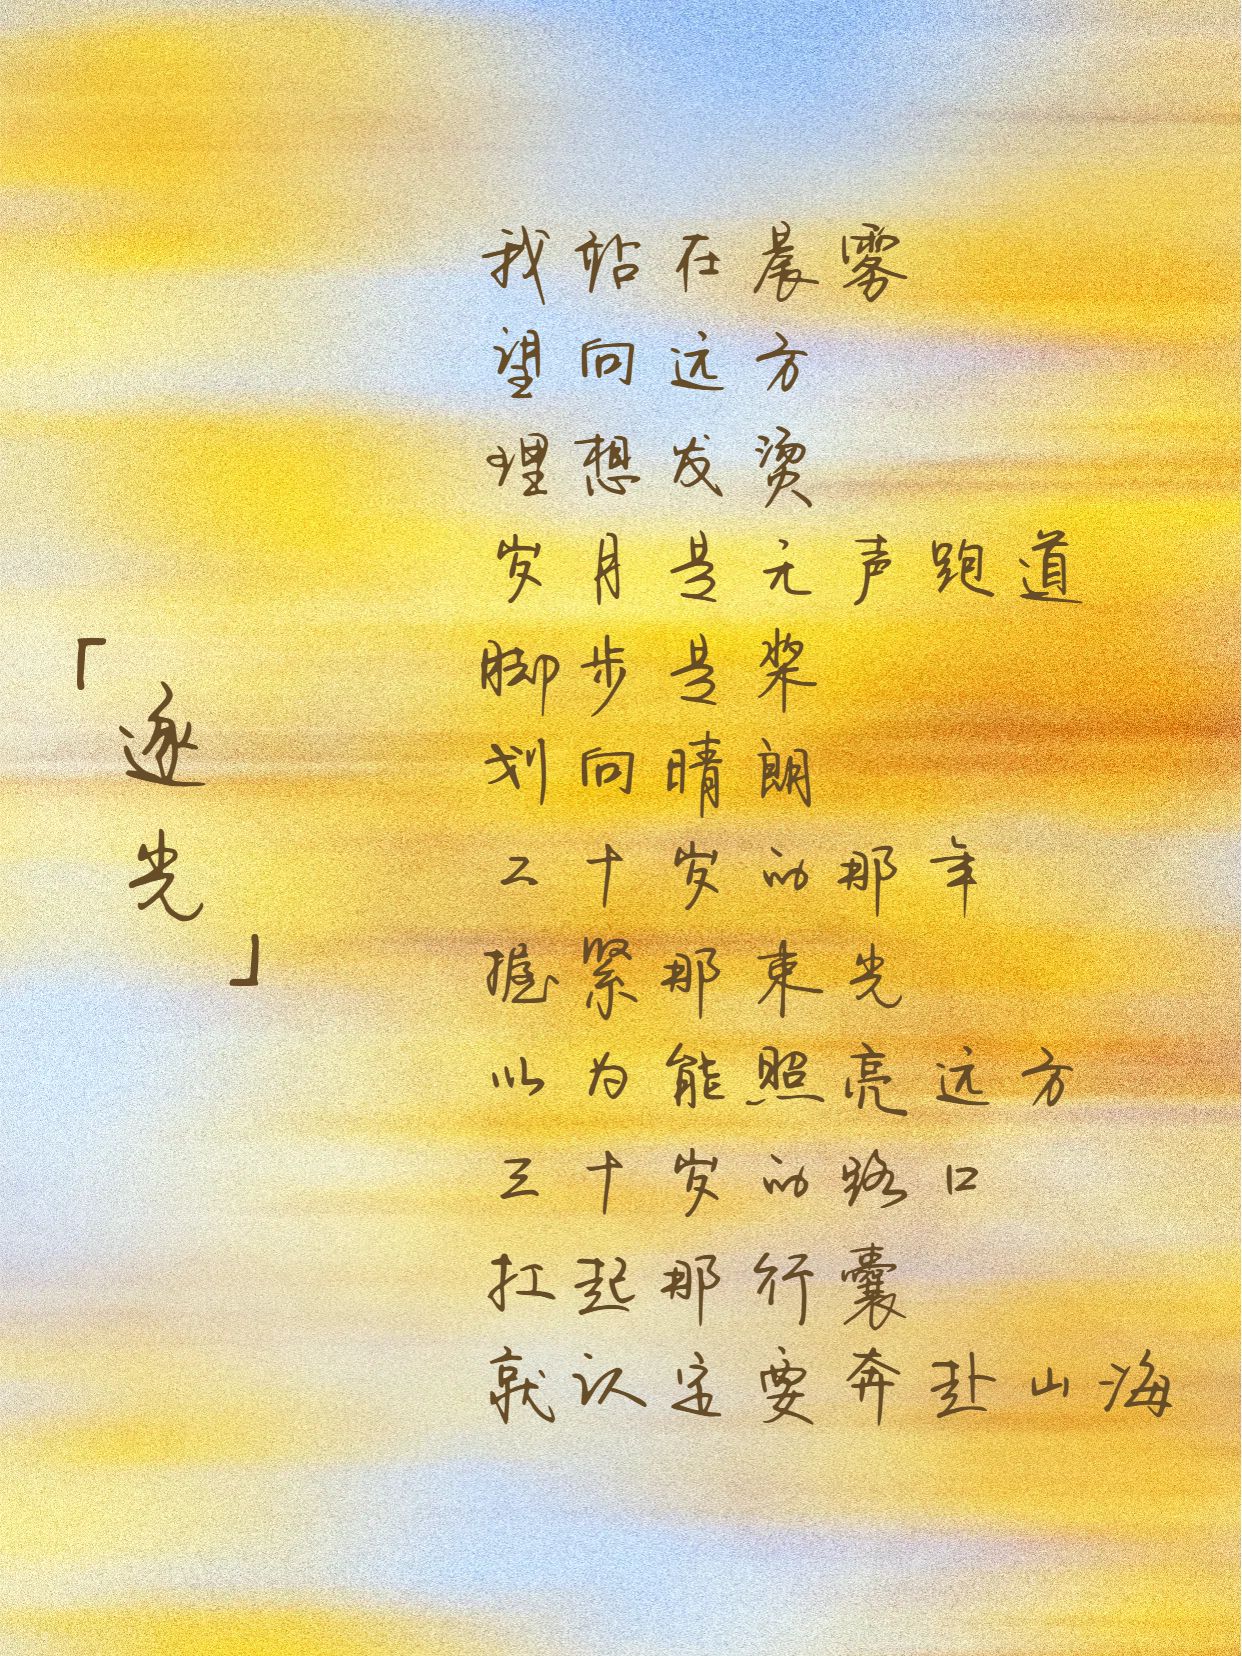 「逐光」
我站在晨雾
望向远方
理想发烫
岁月是无声跑道
脚步是桨
划向晴朗
二十岁的那年
握紧那束光
以为能照亮远方
三十岁的路口
扛起那行囊
就认定要奔赴山海